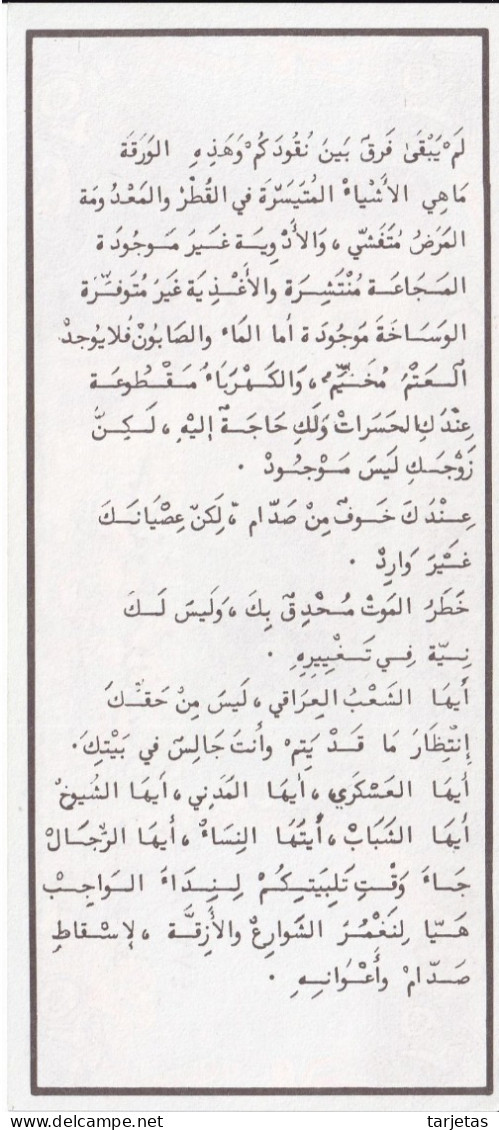 لَمْ يَبْقَىٰ فَرقٌ بَينَ نُقُودَكُمْ وَهَذِهِ الوَرَقَة
مَاهِي الأَشْيَاءُ المُتَيَسّرَة في القُطْرْ والمَعْدُومَة
المَرَضُ مُتَفَشّي، وَالأَدْوِيَة غَيرَ مَوجُودَة
المَجَاعَة مُنْتَشِرَة والأَغْذِيَة غَيَرُ مُتَوفِّرَة
الوَسَاخَةَ مَوجُودَة أما المَاء والصَابُونْ فَلا يُوجدْ
العَتْمُ مُخَيِّمُ، وَالكَهْرَبَاءُ مَقْطُوعَة
عِنْدُكِ الحَسَرَاتْ وَلَكِ حَاجَةٌ إليْهِ، لَكِنَّ
زَوْجَكِ لَيسَ مَوْجُودْ.
عِنْدُكَ خَوفٌ مِنْ صَدّام، لَكنّ عِصْيَانَكَ
غَيْرَ وَارِدْ.
خَطَرُ المَوتْ مُحْدِقٌ بِكَ، وَلَيسَ لَكَ
نِيّة فِي تَغْيِيرِهِ.
أَيهَا الشَعْبُ العِرَاقي، لَيسَ مِنْ حَقّكَ
إنْتِظَارَ مَا قَدْ يَتِمْ وأنتَ جَالِسٌ في بَيْتِكَ.
أَيهَا العَسْكَرِي، أيهَا المَدَنِي، أَيهَا الشُيوخْ
أَيهَا الشَبَابْ، أَيتُهَا النِسَاءْ، أَيهَا الرّجَالْ
جَاءَ وَقْتِ تَلبِيَتِكُمْ لِنِدَاءَ الوَاجِبْ
هَيّا لِنَغْمُرَ الشَوارِعْ والأَزِقّة، لإسْقَاطِ
صَدّامْ وأَعْوَانِهِ.
tarjetas